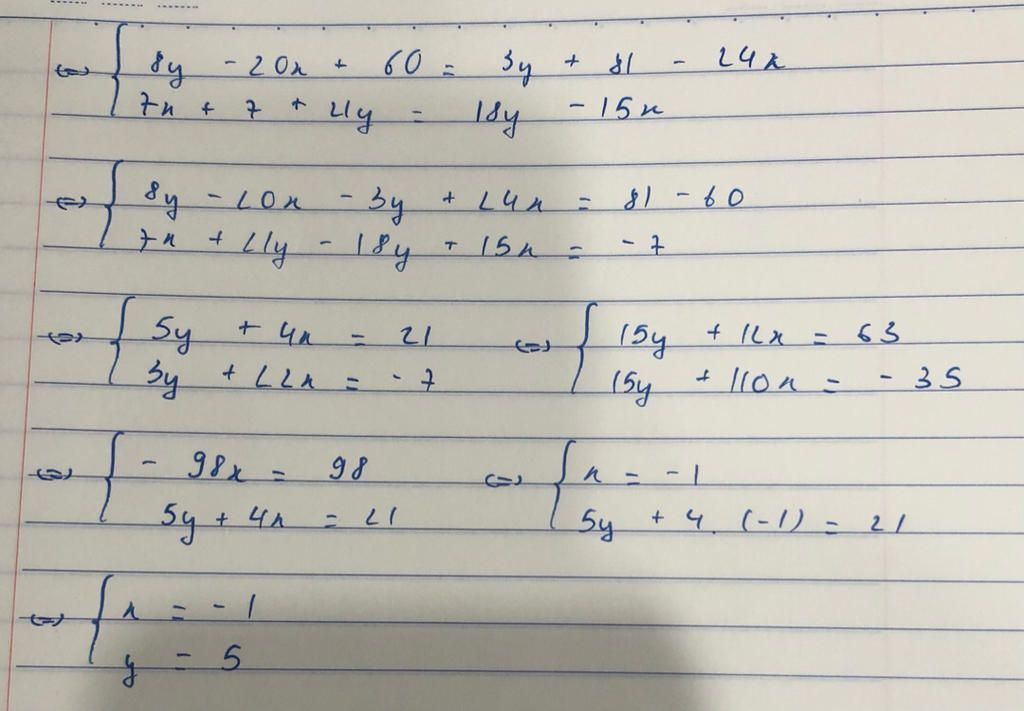 ⇔ { 8y - 20x + 60 = 3y + 81 - 24x
7x + 7 + 21y = 18y - 15x
⇔ { 8y - 20x - 3y + 24x = 81 - 60
7x + 21y - 18y + 15x = - 7
⇔ { 5y + 4x = 21 ⇔ { 15y + 12x = 63
3y + 22x = - 7 15y + 110x = - 35
⇔ { - 98x = 98 ⇔ { x = - 1
5y + 4x = 21 5y + 4. (-1) = 21
⇔ { x = - 1
y = 5